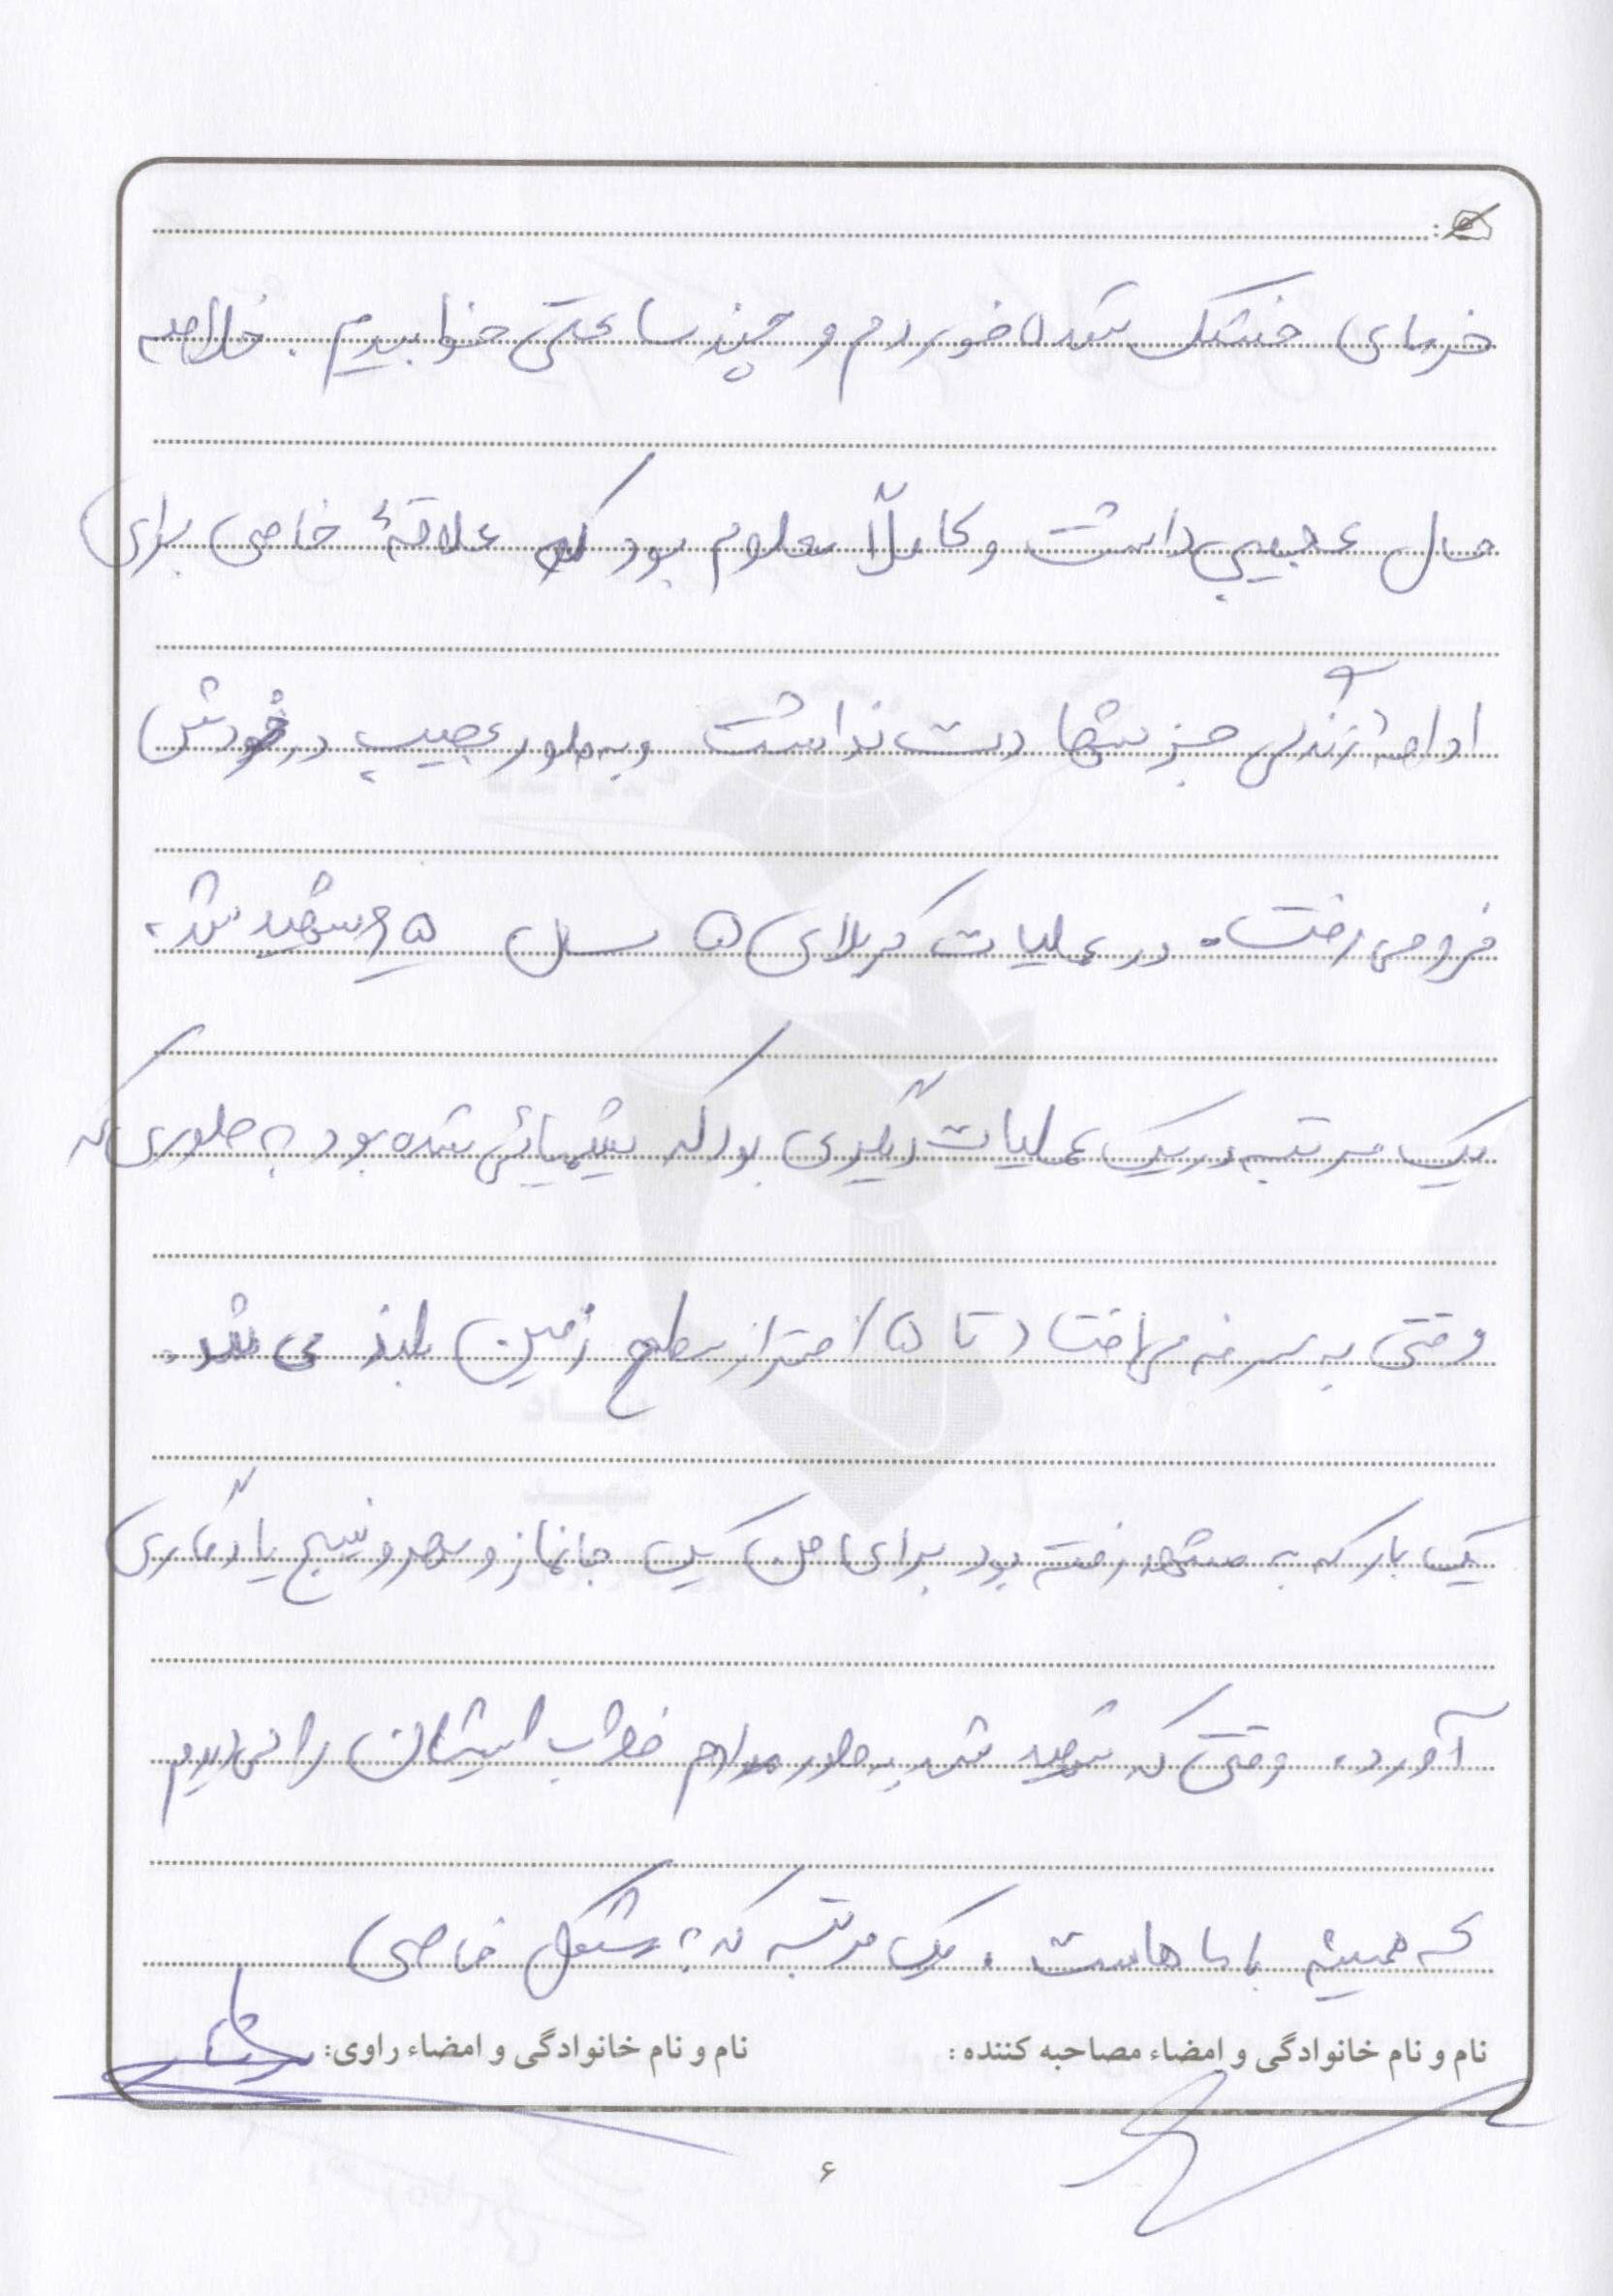 خرمای خشک شده خوردم و چند ساعتی خوابیدم. خلاصه
حال عجیبی داشت و کاملاً معلوم بود که علاقهٔ خاصی برای
ادامهٔ زندگی جز شهادت نداشت و به طور عجیب در خودش
فرو می رفت. در عملیات کربلای ۵ سال ۶۵ شهید شد.
یک مرتبه در یک عملیات دیگری بود که شیمیائی شده بود به طوری که
وقتی به سرفه می افتاد تا ۱/۵ متر از سطح زمین بلند می شد.
یک بار که به مشهد رفته بود برای من یک جانماز و مهر و تسبیح یادگاری
آورد. وقتی که شهید شد به طور مداوم خواب ایشان را می دیدم
که همیشه با ما هاست. یک مرتبه که به شکل خاصی
نام و نام خانوادگی و امضاء مصاحبه کننده : نام و نام خانوادگی و امضاء راوی:
۶